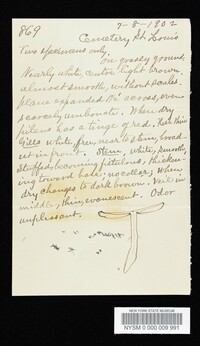 869
7-8-1902
Cemetery St. Louis
Two specimens only,
on grassy ground.
Nearly white, center light brown,
almost smooth, without scales.
plane expanded across, even
scarcely umbonate. When dry
pileus has a tinge of red. Flesh thin
Gills white, free, near to stem, broad-
est in front. Stem, white, smooth,
stuffed, becoming fistulous, thicken-
ing toward base; no collar; when
dry changes to dark brown. Veil in
middle, thin, evanescent. Odor
unpleasant.
NEW YORK STATE MUSEUM
NYSM 0 000 009 991